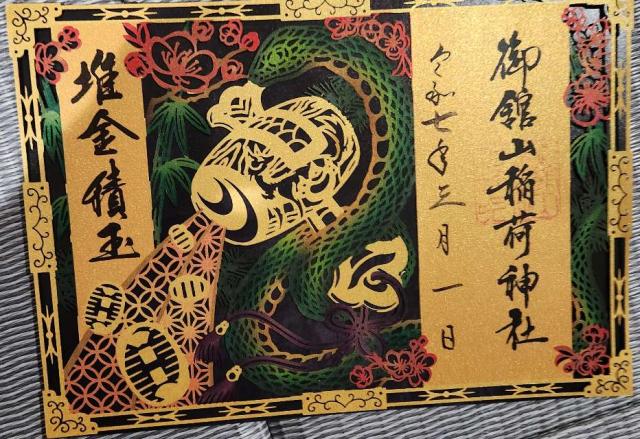 御館山稲荷神社
令和七年三月一日
堆金積玉